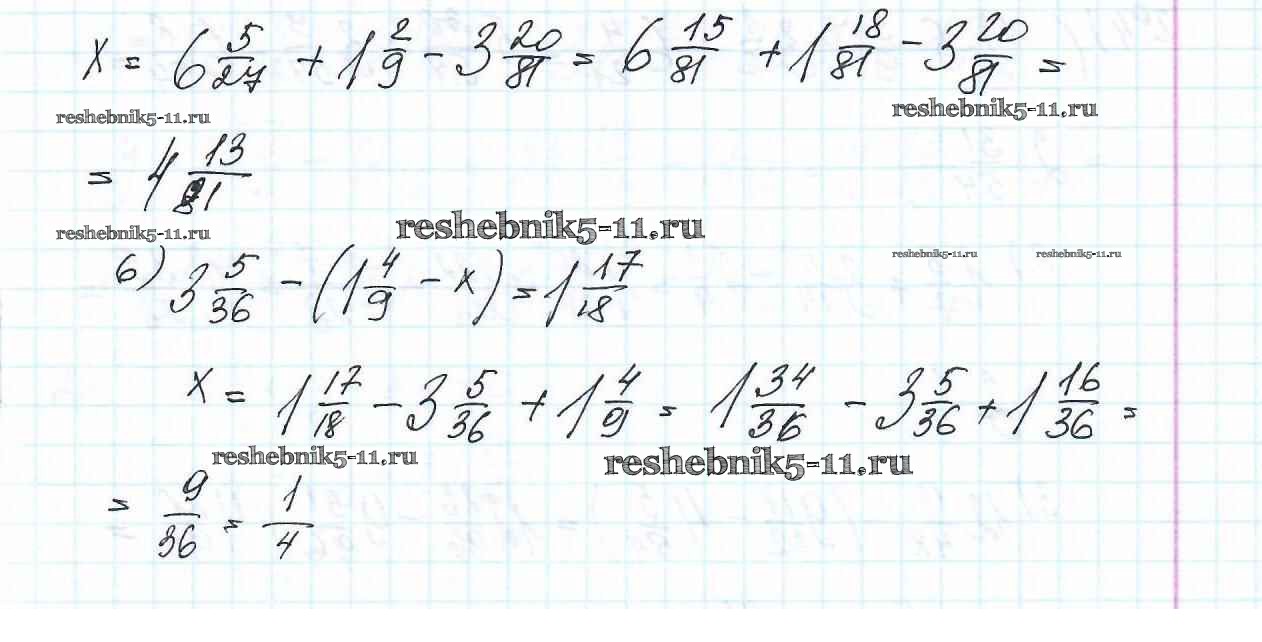 x = 6 5/27 + 1 2/9 - 3 20/81 = 6 15/81 + 1 18/81 - 3 20/81 =
reshebnik5-11.ru reshebnik5-11.ru
= 4 13/81
reshebnik5-11.ru reshebnik5-11.ru
б) 3 5/36 - (1 4/9 - x) = 1 17/18
reshebnik5-11.ru reshebnik5-11.ru
x = 1 17/18 - 3 5/36 + 1 4/9 = 1 34/36 - 3 5/36 + 1 16/36 =
reshebnik5-11.ru reshebnik5-11.ru
= 9/36 = 1/4